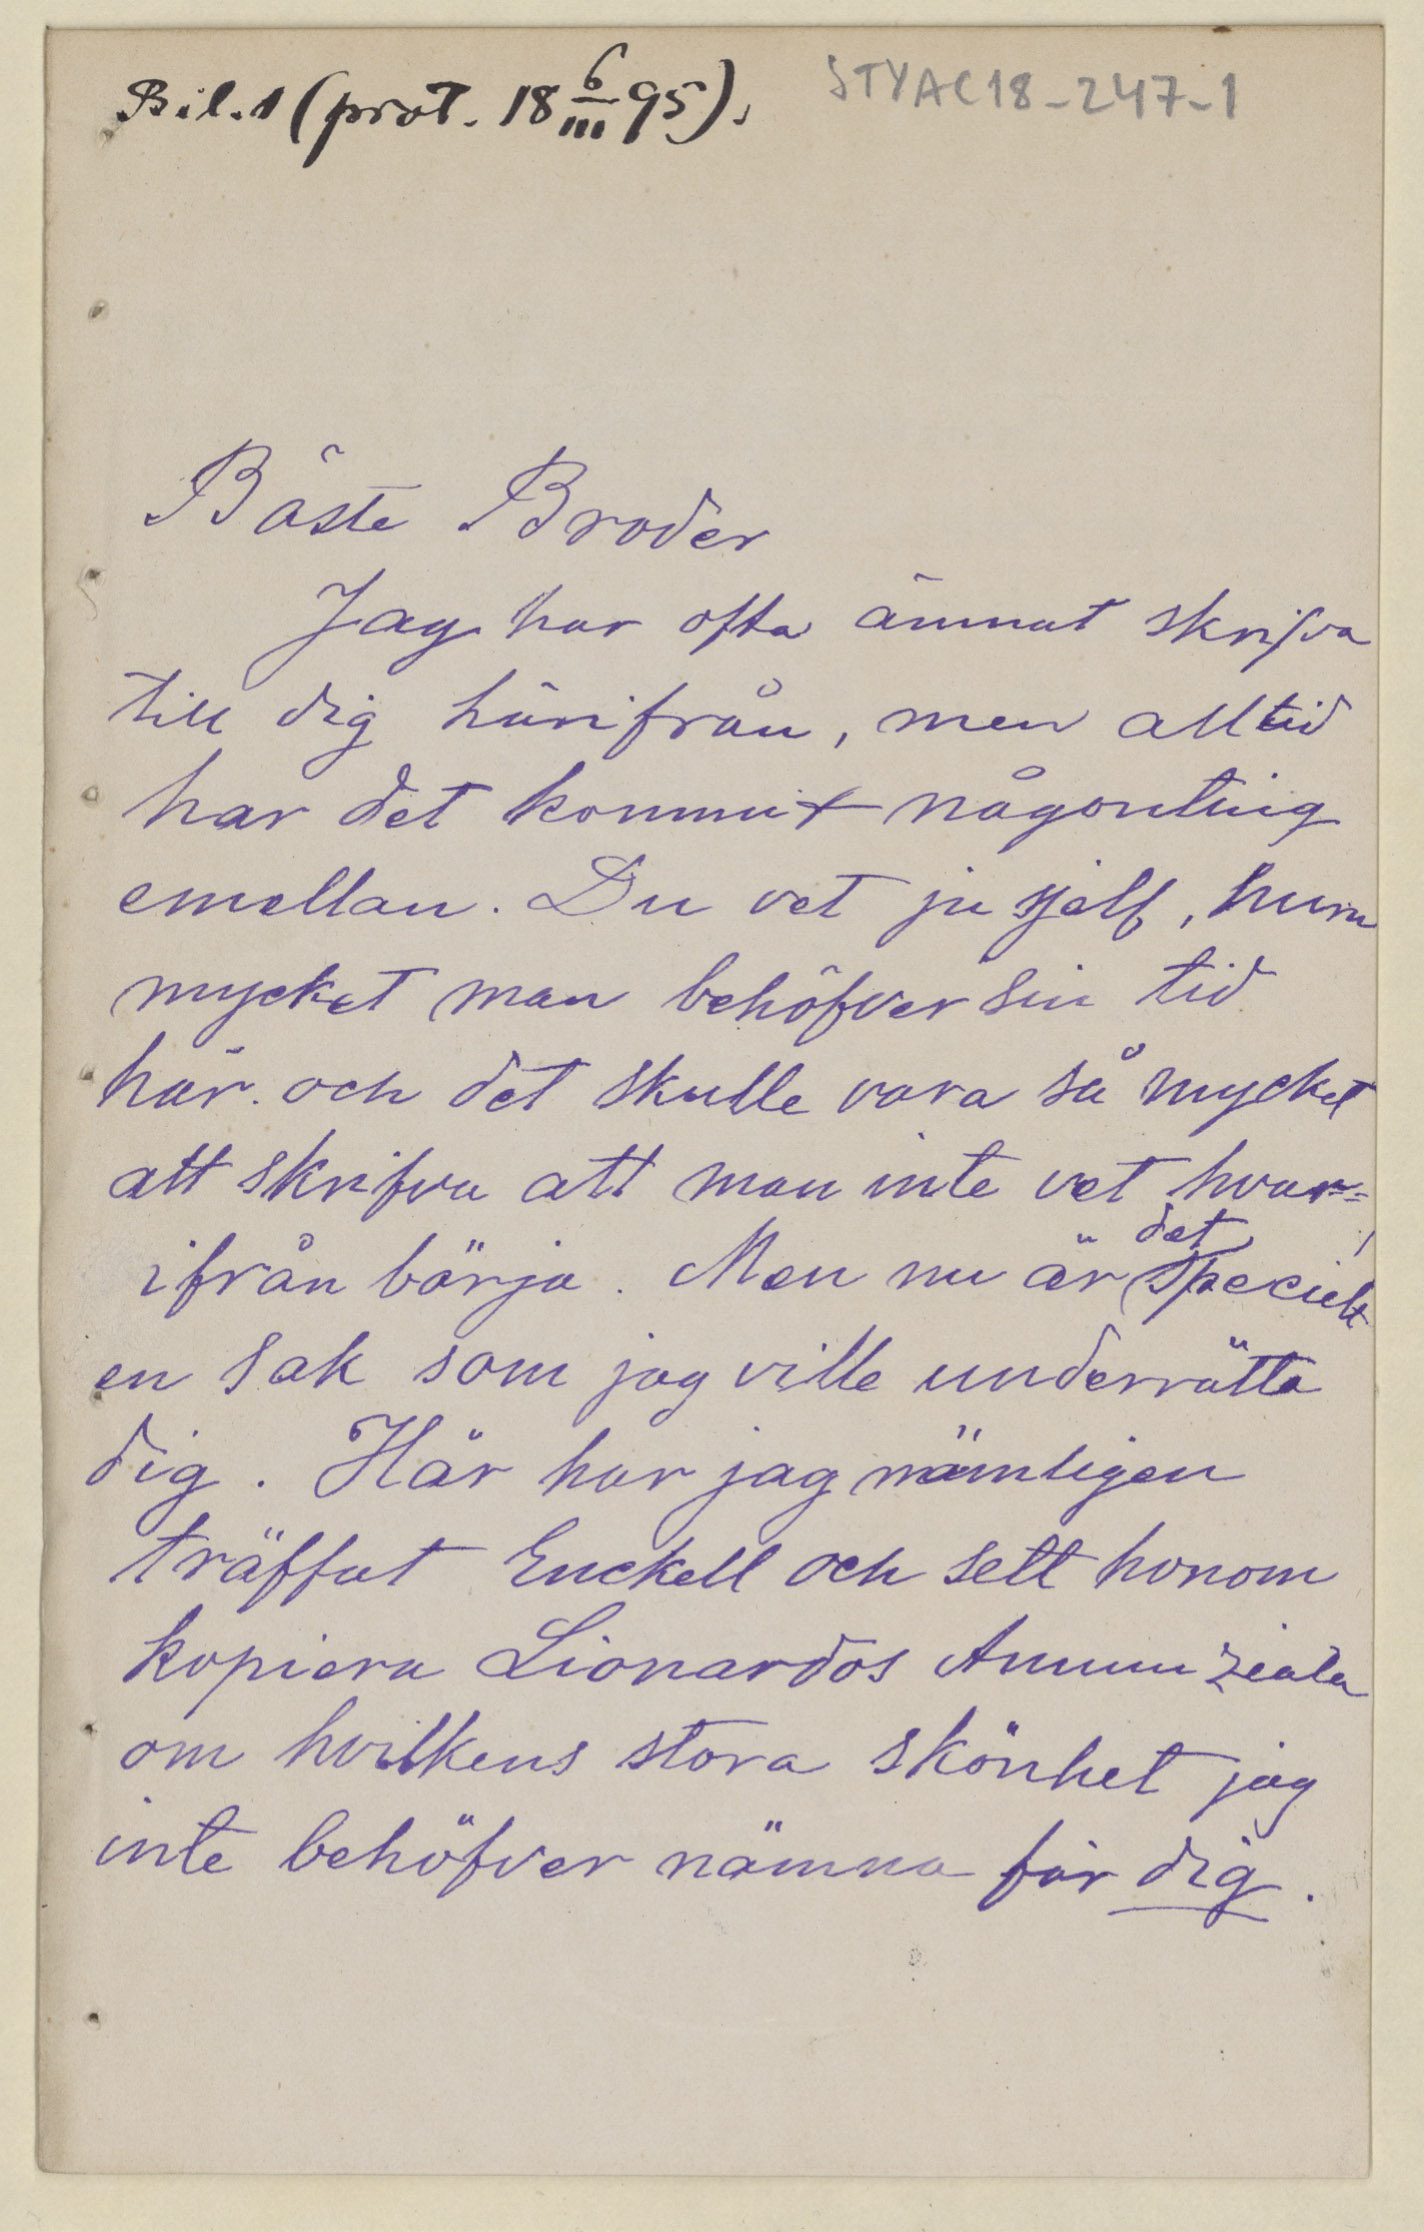 Bil. 1 (prot. 18 6/III 95).
STYAC18-247-1
Bäste Broder
Jag har ofta ämnat skrifva
till dig härifrån, men alltid
har det kommit någonting
emellan. Du vet ju sjelf, huru
mycket man behöfver sin tid
här. och det skulle vara så mycket
att skrifva att man inte vet hvar=
ifrån börja. Men nu är det specielt
en sak som jag ville underrätta
dig. Här har jag nämligen
träffat Enckell och sett honom
kopiera Lionardos Annunziata
om hvilkens stora skönhet jag
inte behöfver nämna för dig.